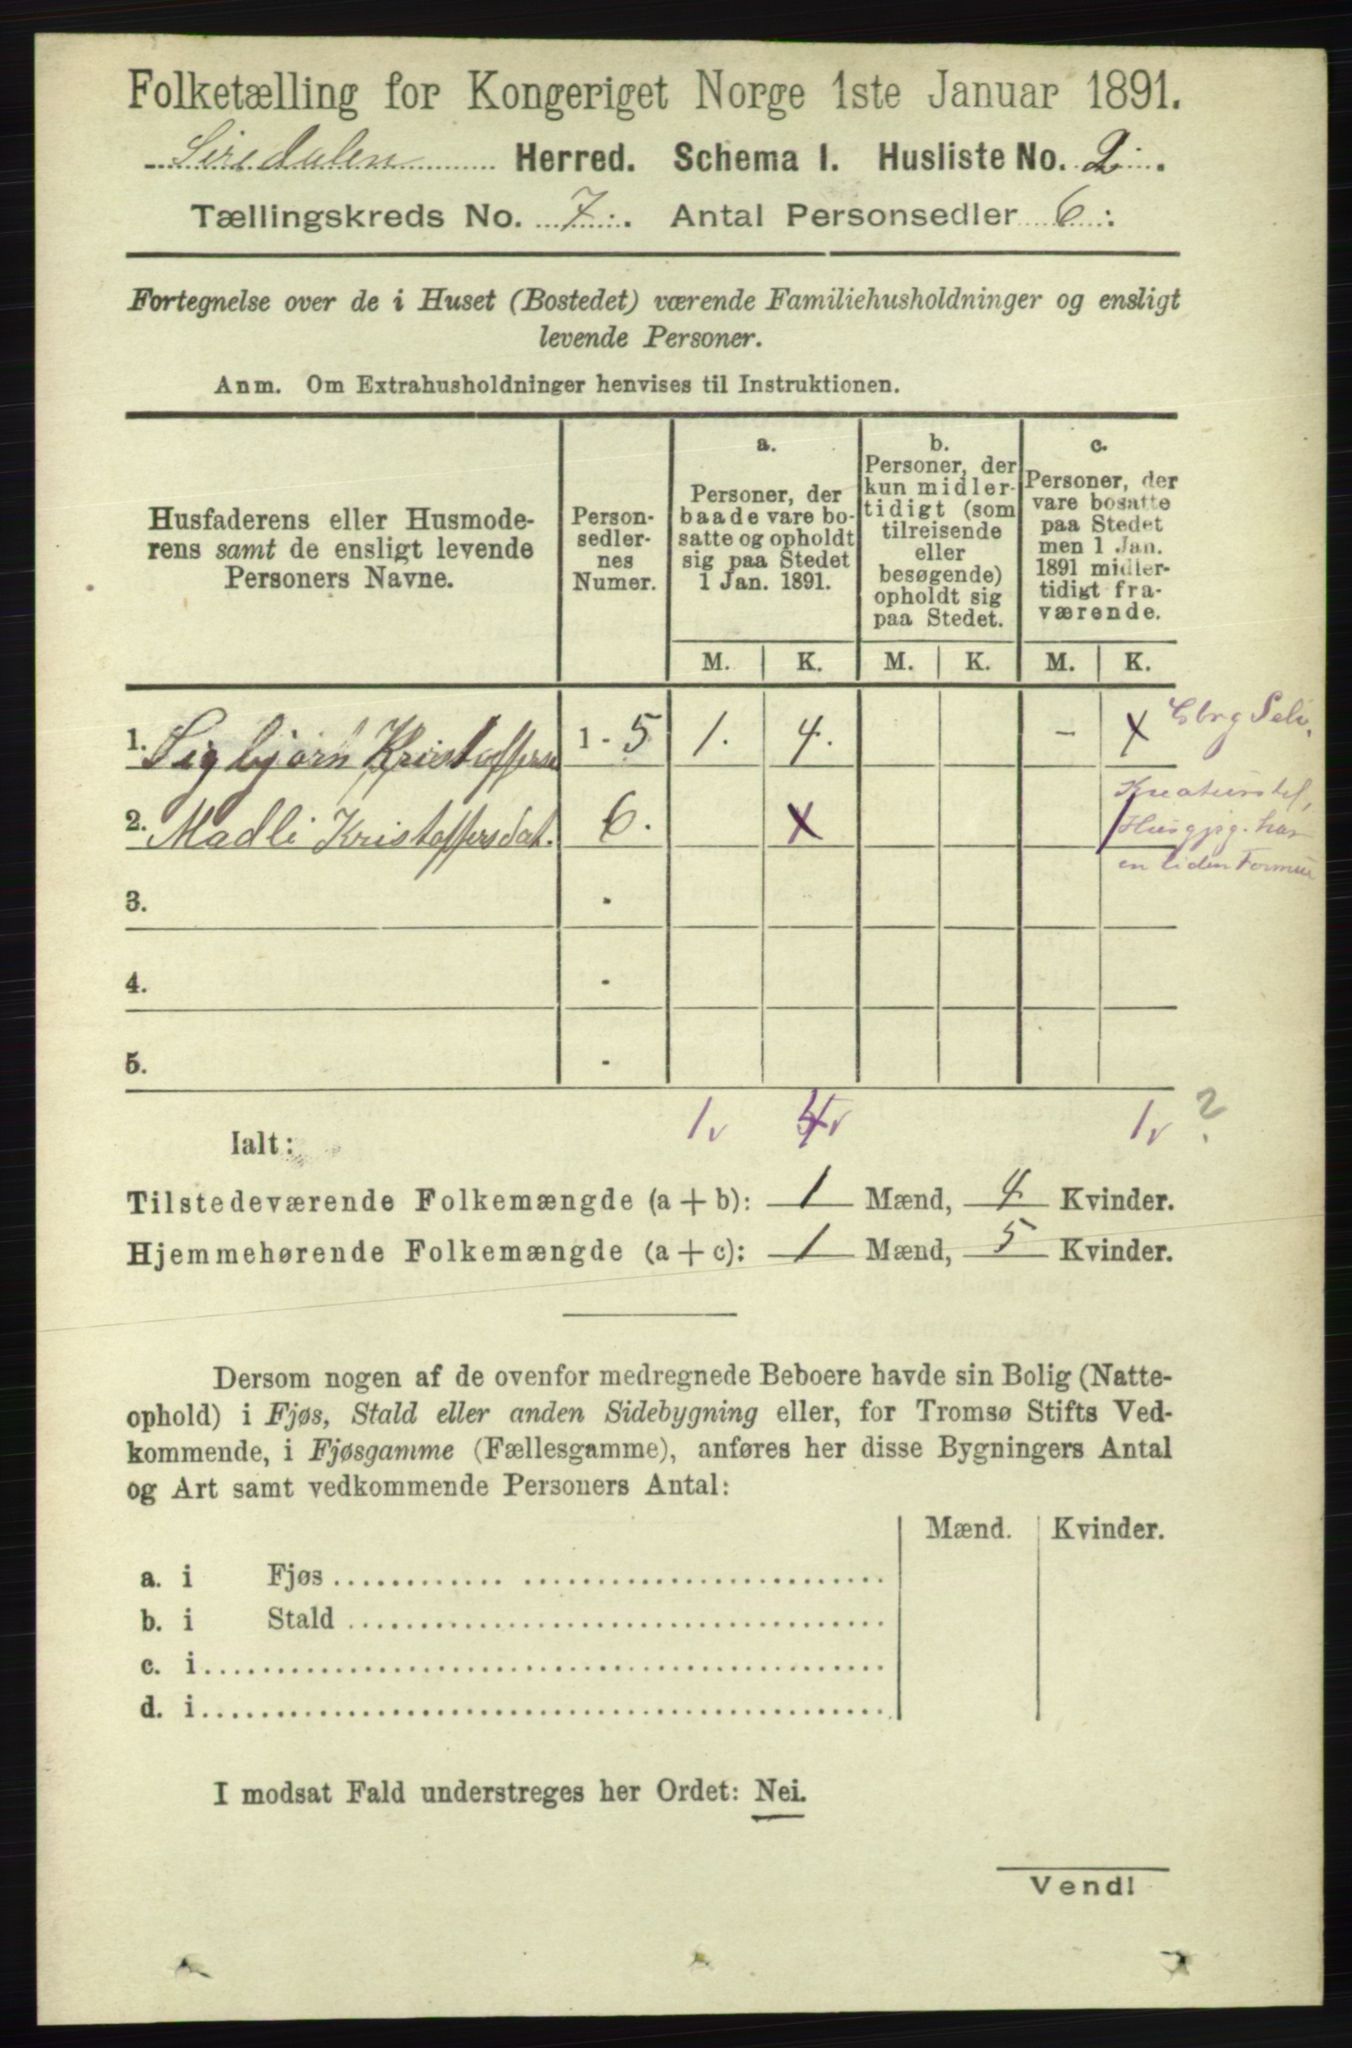 Folketælling for Kongeriget Norge 1ste Januar 1891.
Siredalen Herred. Schema I. Husliste No. 2.
Tællingskreds No. 7. Antal Personsedler 6.
Fortegnelse over de i Huset (Bostedet) værende Familiehusholdninger og ensligt
levende Personer.
Anm. Om Extrahusholdninger henvises til Instruktionen.
Husfaderens eller Husmode-
rens samt de ensligt levende
Personers Navne.
Person-
sedler-
nes
Numer.
a.
Personer, der
baade vare bo-
satte og opholdt
sig paa Stedet
1 Jan. 1891.
b.
Personer, der
kun midler-
tidigt (som
tilreisende
eller
besøgende)
opholdt sig
paa Stedet.
c.
Personer, der
vare bosatte
paa Stedet
men 1 Jan.
1891 midler-
tidigt fra-
værende.
M. K. M. K. M. K.
1. Sigbjørn Kristoffersen 1 - 5 1. 4. - x
2. Madli Kristoffersdat. 6. x
Husgjg. har
en liden Formue
3. -
4. -
5. -
Ialt: 1 1 ?
Tilstedeværende Folkemængde (a + b): 1 Mænd, 4 Kvinder.
Hjemmehørende Folkemængde (a + c): 1 Mænd, 5 Kvinder.
Dersom nogen af de ovenfor medregnede Beboere havde sin Bolig (Natte-
ophold) i Fjøs, Stald eller anden Sidebygning eller, for Tromsø Stifts Ved-
kommende, i Fjøsgamme (Fællesgamme), anføres her disse Bygningers Antal
og Art samt vedkommende Personers Antal:
Mænd. Kvinder.
a. i Fjøs
b. i Stald
c. i
d. i
I modsat Fald understreges her Ordet: Nei.
Vend!